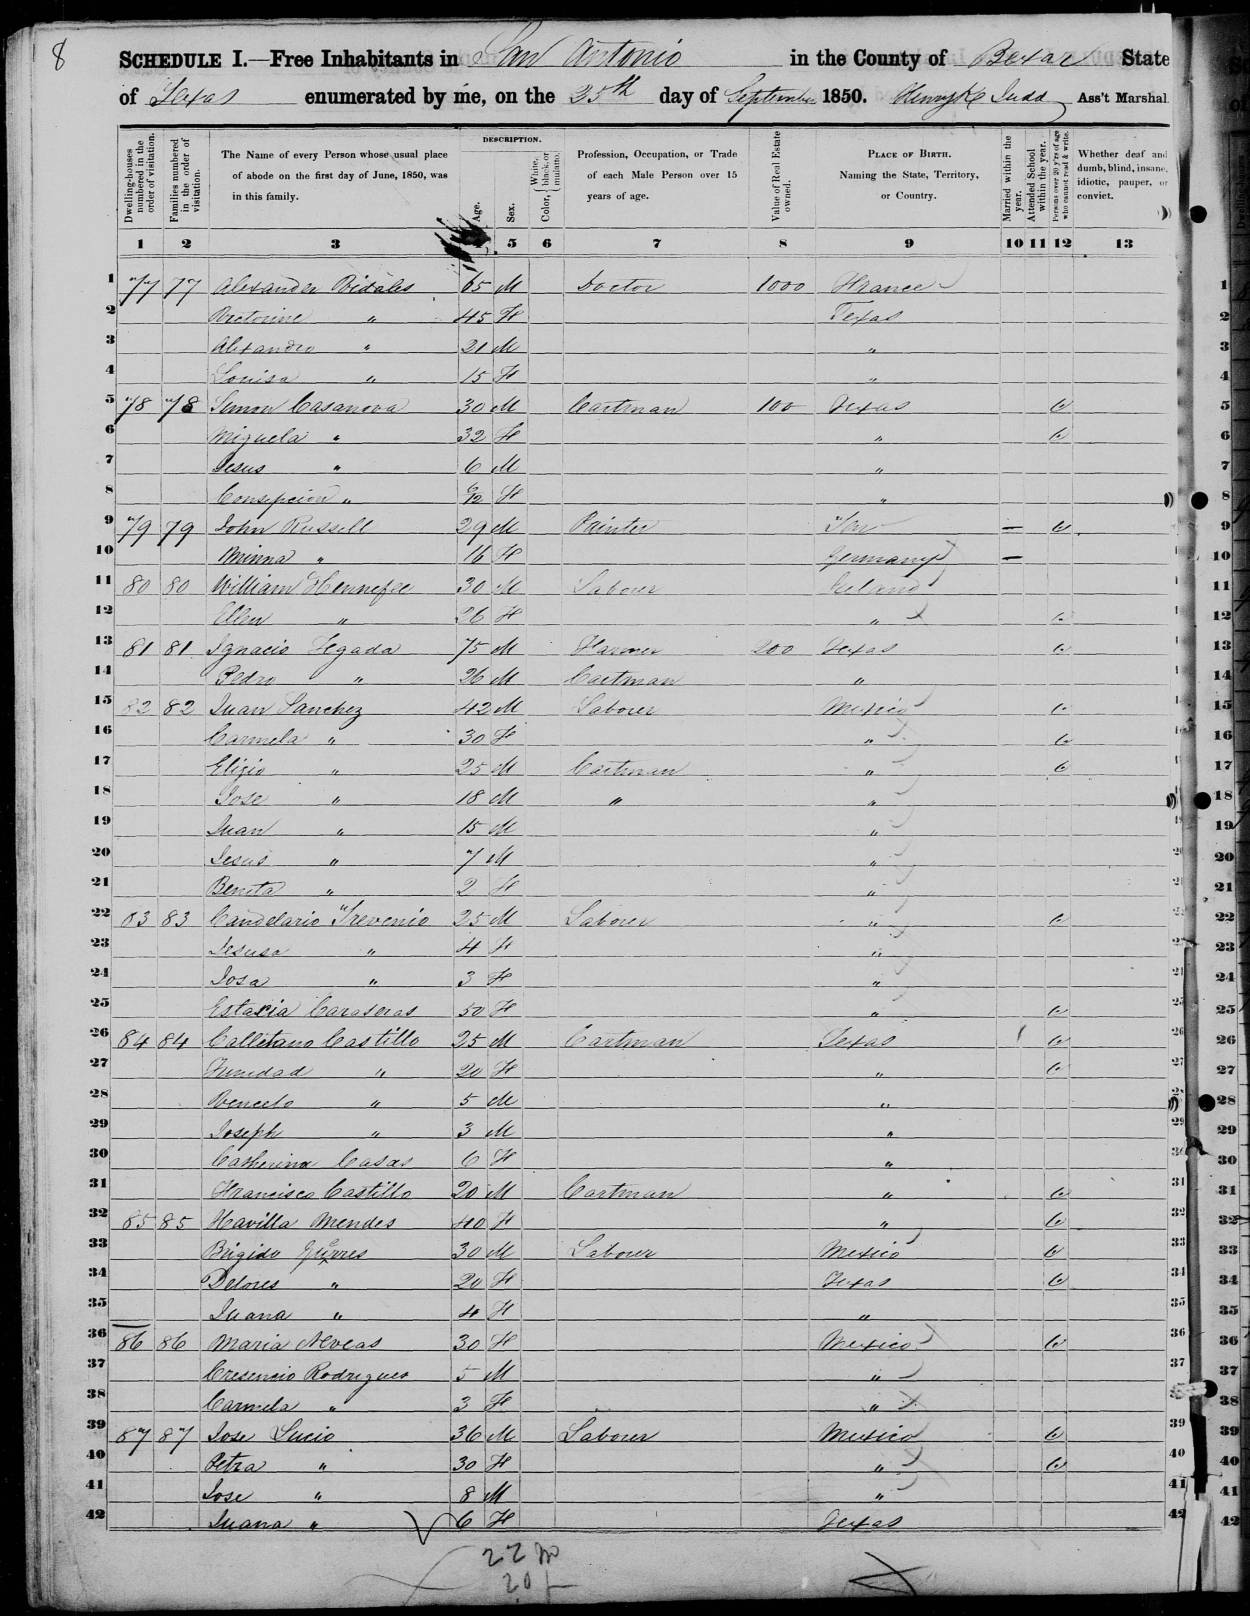 8
SCHEDULE I.—Free Inhabitants in San Antonio in the County of Bexar State
of Texas enumerated by me, on the 25th day of September 1850. Henry K Judd Ass't Marshal
Dwelling-houses numbered in the order of visitation.
Families numbered in the order of visitation.
The Name of every Person whose usual place of abode on the first day of June, 1850, was in this family.
DESCRIPTION.
Age.
Sex.
Color, { White, black, or mulatto.
Profession, Occupation, or Trade of each Male Person over 15 years of age.
Value of Real Estate owned.
PLACE OF BIRTH. Naming the State, Territory, or Country.
Married within the year.
Attended School within the year.
Persons over 20 y'rs of age who cannot read & write.
Whether deaf and dumb, blind, insane, idiotic, pauper, or convict.
1 2 3 5 6 7 8 9 10 11 12 13
1 77 77 Alexander Vidales 65 M Doctor 1000 France 1
2 Victorine " 45 F Texas 2
3 Alexandro " 21 M " 3
4 Louisa " 15 F " 4
5 78 78 Simon Casanova 30 M Cartman 100 Texas 5
6 Miguela " 32 F " 6
7 Jesus " 6 M " 7
8 Consepcion " 6/12 F " 8
9 79 79 John Russell 29 M Painter Ten — 9
10 Minna " 16 F Germany — 10
11 80 80 William Hennefee 30 M Laborer Ireland 11
12 Ellen " 26 F " 12
13 81 81 Ignacio 75 M Farmer 200 Texas 13
14 Pedro " 26 M Cartman " 14
15 82 82 Juan Sanchez 42 M Laborer Mexico 15
16 Carmela " 30 F " 16
17 Eligio " 25 M Cartman " 17
18 Jose " 18 M " " 18
19 Juan " 15 M " 19
20 Jesus " 7 M " 20
21 Benita " 2 F " 21
22 83 83 Candelario Trevenio 25 M Laborer " 22
23 Jesusa " 4 F " 23
24 Rosa " 3 F " 24
25 Estacia 50 F " 25
26 84 84 Calletano Castillo 25 M Cartman Texas 26
27 Trinedad " 20 F " 27
28 Venceto " 5 M " 28
29 Joseph " 3 M " 29
30 Catherina Casas 6 F " 30
31 Francisco Castillo 20 M Cartman " 31
32 85 85 Mendes 40 F " 32
33 Brigido 30 M Laborer Mexico 33
34 Delores " 20 F Texas 34
35 Juana " 4 F " 35
36 86 86 Maria 30 F Mexico 36
37 Cresencio Rodrigues 5 M " 37
38 Carmela " 3 F " 38
39 87 87 Jose Lucio 36 M Laborer Mexico 39
40 Petra " 30 F " 40
41 Jose " 8 M " 41
42 Juana " 6 F Texas 42
22 m
20 f